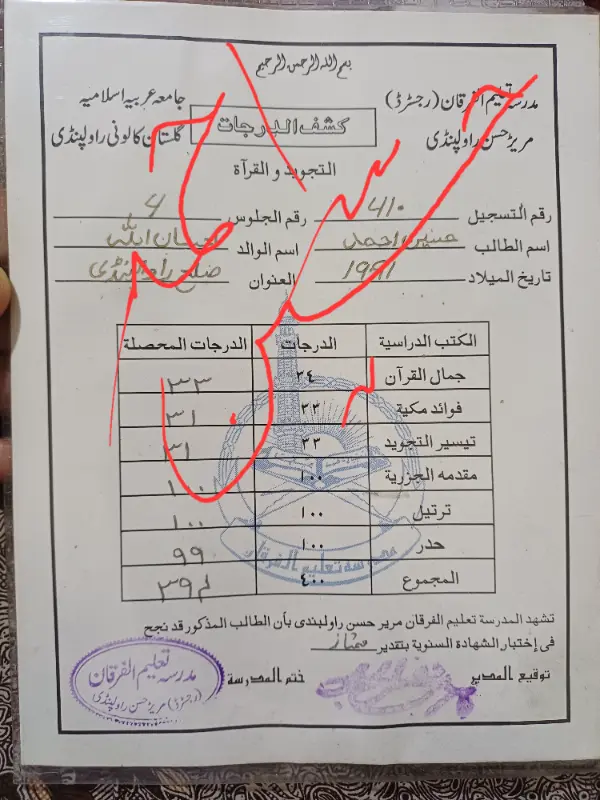 بسم الله الرحمن الرحيم
مدرسہ تعلیم الفرقان (رجسٹرڈ)
مریڑ حسن راولپنڈی
كشف الدرجات
جامعہ عربیہ اسلامیہ
گلستان کالونی راولپنڈی
التجويد و القرآة
رقم التسجيل ٤١٠ رقم الجلوس 4
اسم الطالب حسنین احمد اسم الوالد احسان اللہ
تاريخ الميلاد 1991 العنوان ضلع راولپنڈی
الكتب الدراسية الدرجات الدرجات المحصلة
جمال القرآن ٣٤ ٣٣
فوائد مكية ٣٣ ٣١
تيسير التجويد ٣٣ ٣١
مقدمه الجزرية ١٠٠ ١٠٠
ترتيل ١٠٠ ١٠٠
حدر ١٠٠ ٩٩
المجموع ٤٠٠ ٣٩٤
تشهد المدرسة تعليم الفرقان مرير حسن راولبندى بأن الطالب المذكور قد نجح
فى إختبار الشهادة السنوية بتقدير ممتاز
توقيع المدير ختم المدرسة
مدرسہ تعلیم الفرقان
(رجسٹرڈ) مریڑ حسن راولپنڈی
مدرسه تعليم الفرقان